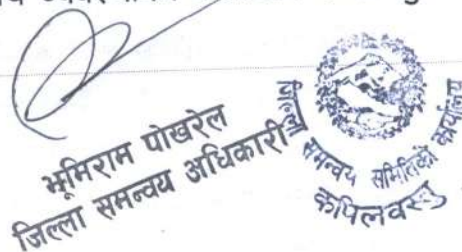 भूमिराम पोखरेल
जिल्ला समन्वय अधिकारी
जिल्ला समन्वय समितिको कार्यालय
कपिलवस्तु